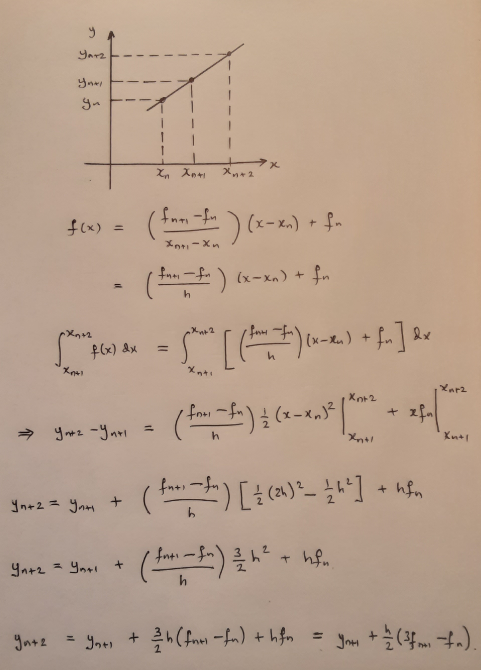 y
yn+2
yn+1
yn
xn xn+1 xn+2 x
f(x) = ((fn+1 - fn)/(xn+1 - xn)) (x - xn) + fn
= ((fn+1 - fn)/h) (x - xn) + fn
∫_{xn+1}^{xn+2} f(x) dx = ∫_{xn+1}^{xn+2} [((fn+1 - fn)/h) (x - xn) + fn] dx
⇒ yn+2 - yn+1 = ((fn+1 - fn)/h) 1/2 (x - xn)² |_{xn+1}^{xn+2} + xfn |_{xn+1}^{xn+2}
yn+2 = yn+1 + ((fn+1 - fn)/h) [1/2 (2h)² - 1/2 h²] + hfn
yn+2 = yn+1 + ((fn+1 - fn)/h) 3/2 h² + hfn.
yn+2 = yn+1 + 3/2 h(fn+1 - fn) + hfn = yn+1 + h/2 (3fn+1 - fn)